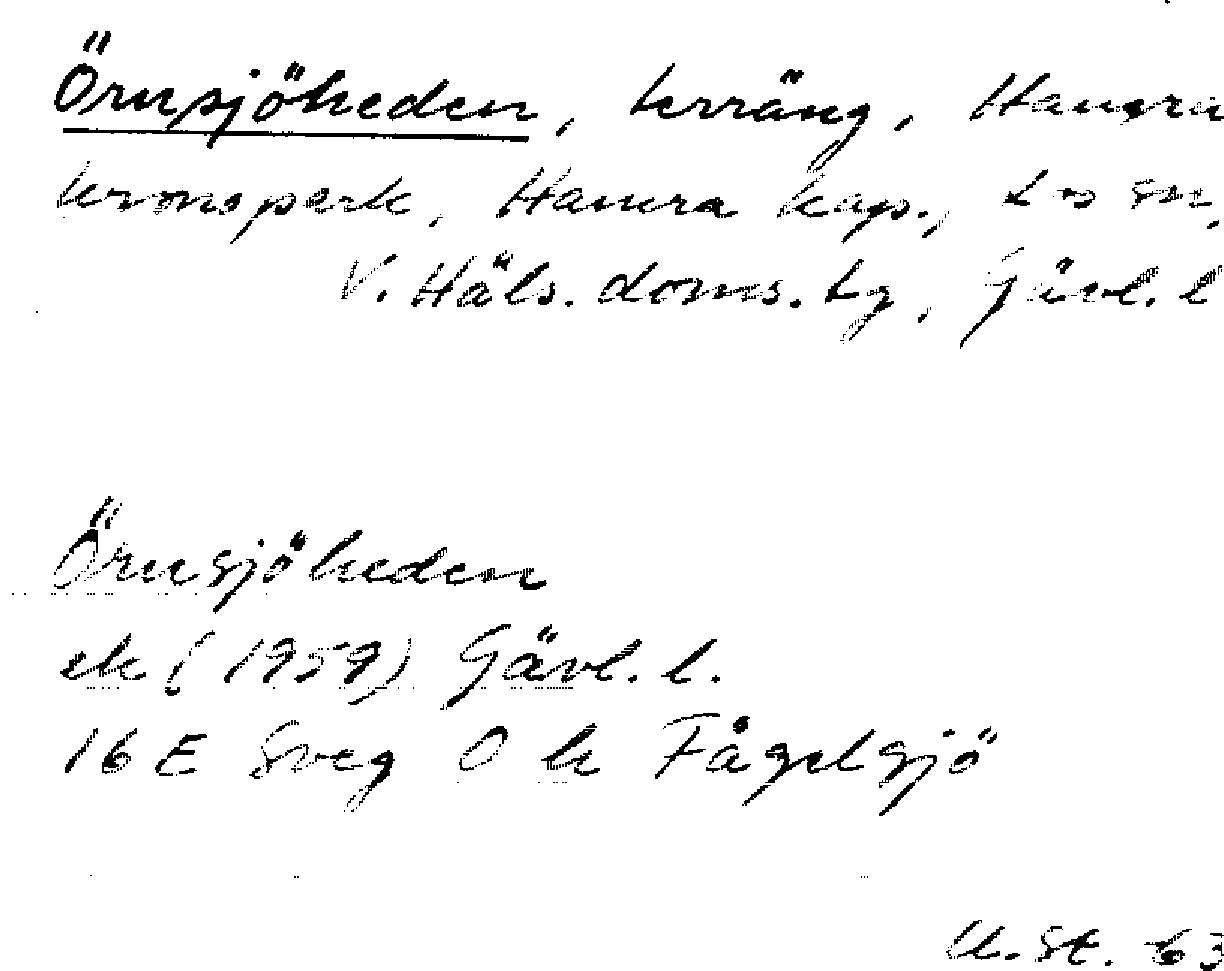 Örnsjöheden, terräng, Hamra
kronopark, Hamra kap., Los sn,
V. Häls. doms. tg, Gävl. l
Örnsjöheden
ek (1959) Gävl. l.
16 E Sveg O k Fågelsjö
U. St. 63